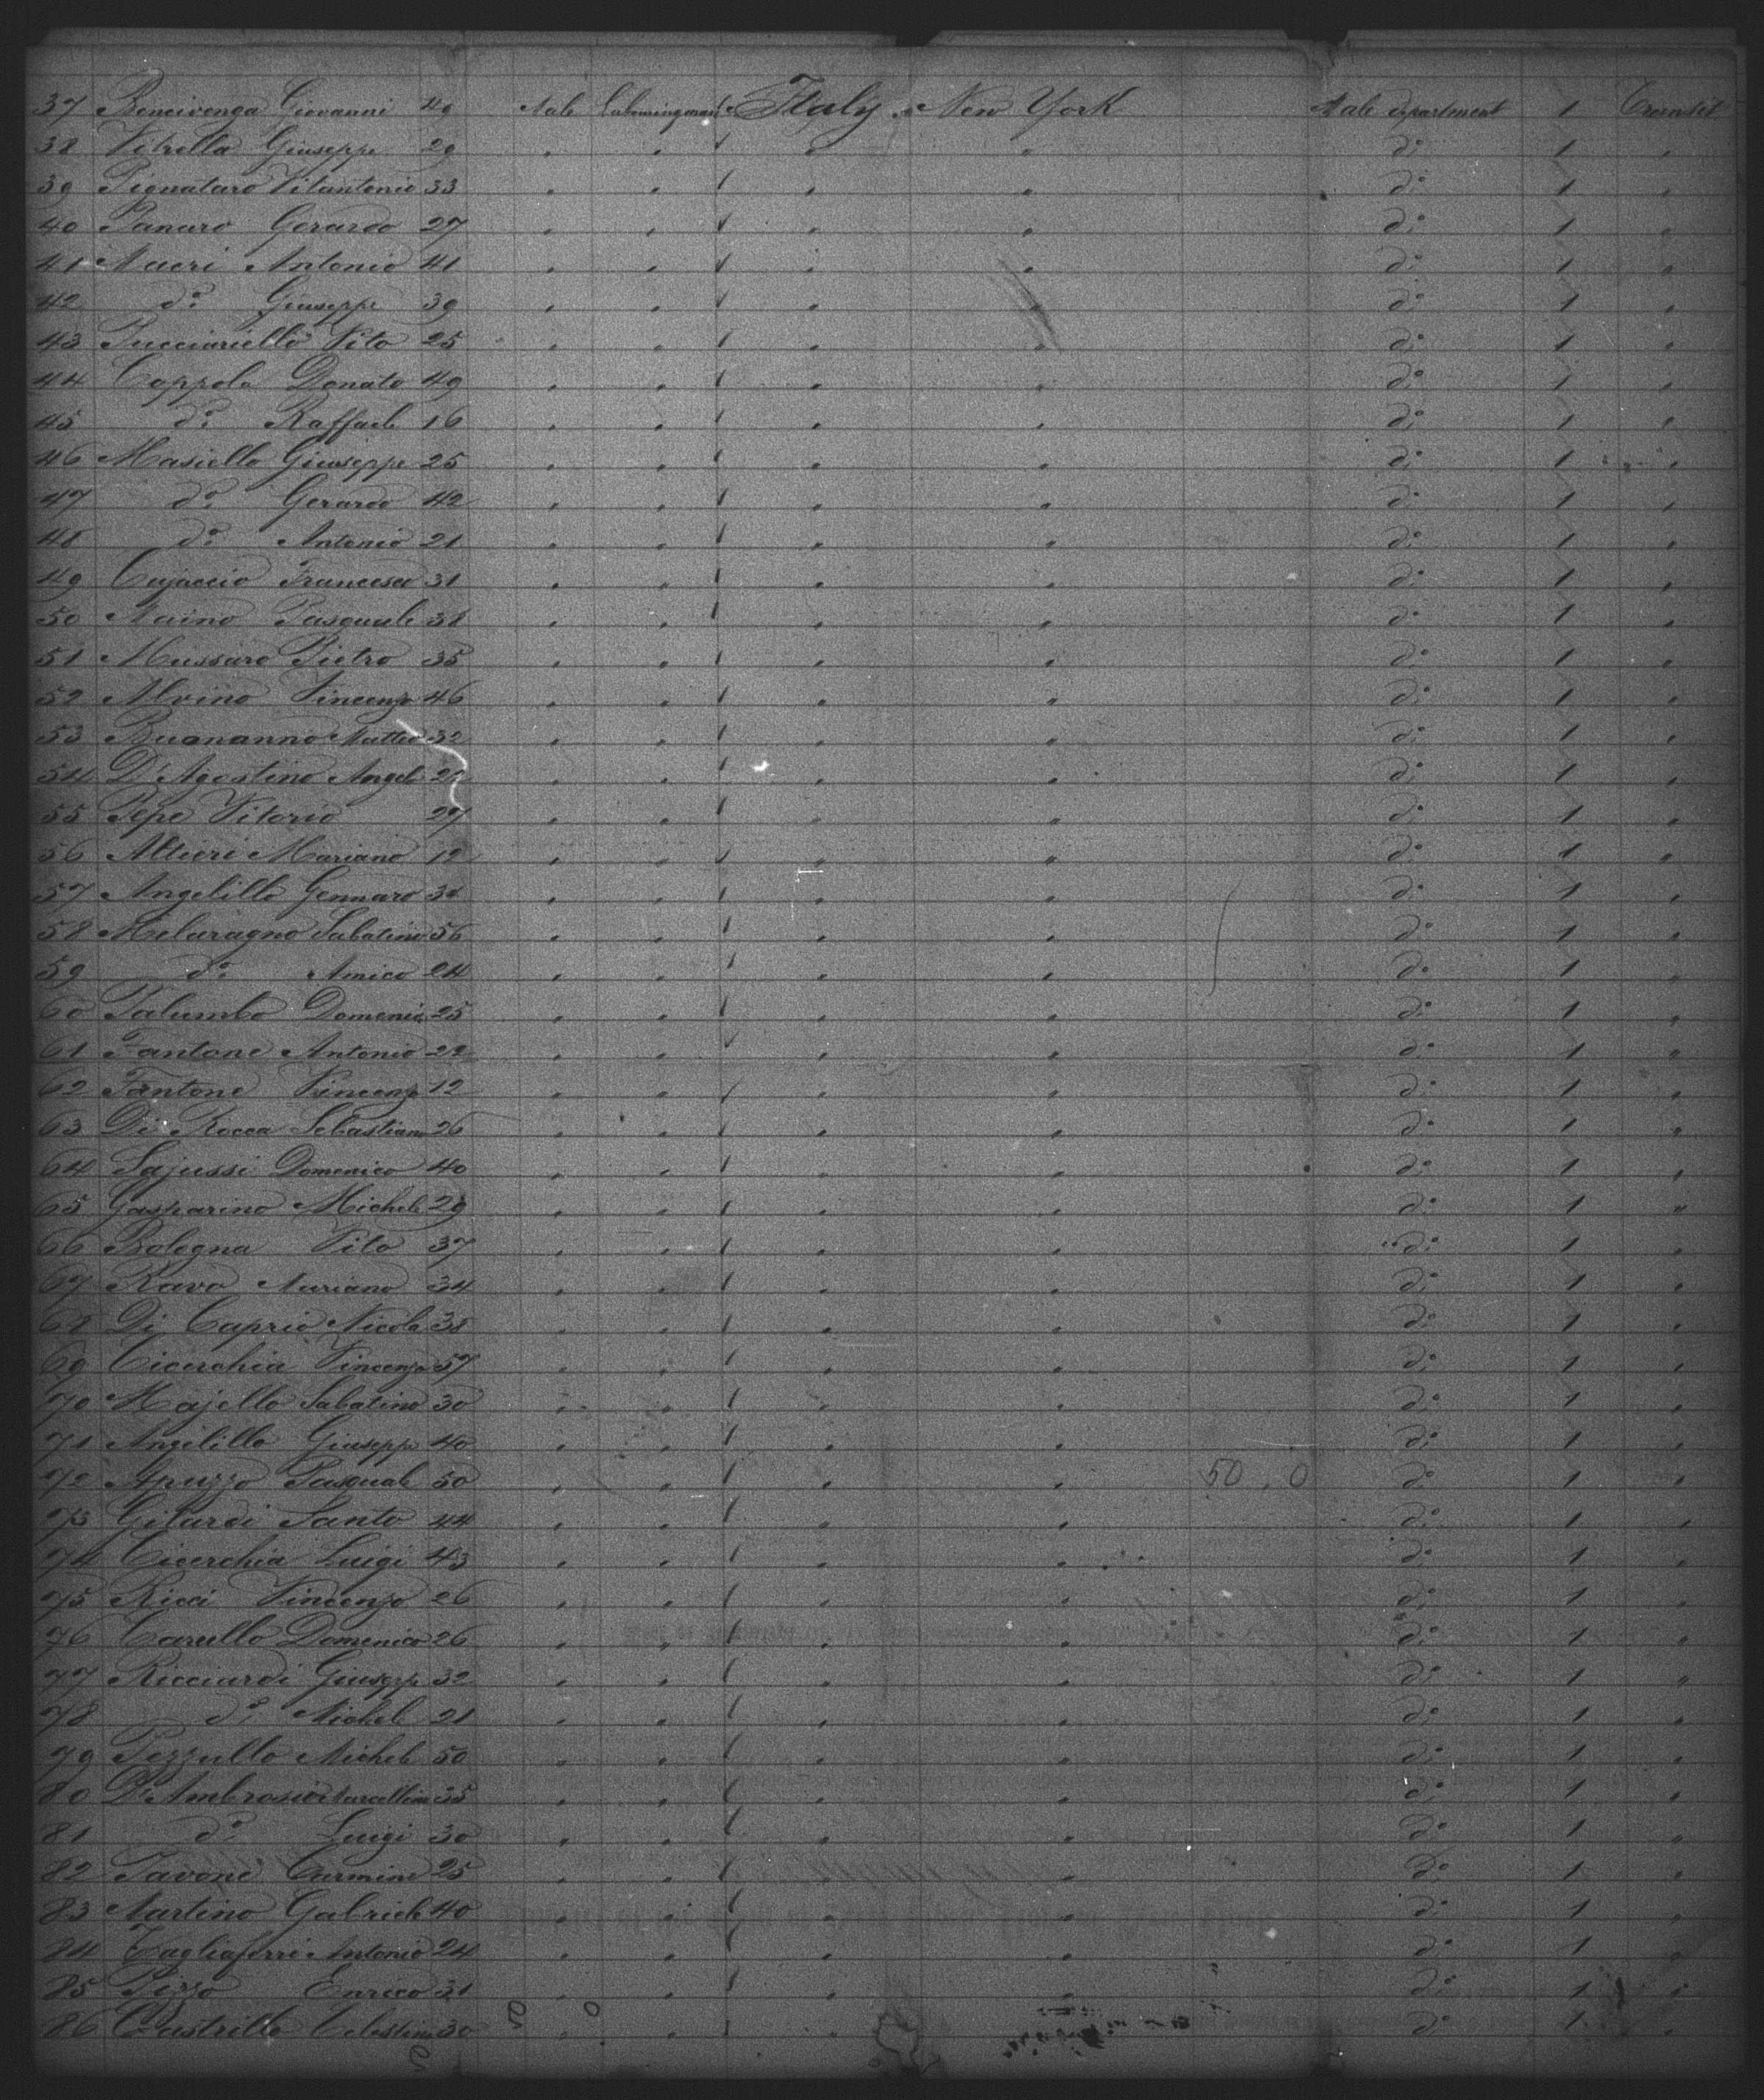 37 Bencivenga Giovanni 49 Male Labouring man Italy New York Male department 1 Transit
38 Vitrella Giuseppe 29 " " " " d:º 1 "
39 Pignataro Vitantonio 33 " " " " d:º 1 "
40 Panaro Gerardo 27 " " " " d:º 1 "
41 Macri Antonio 41 " " " " d:º 1 "
42 d:º Giuseppe 39 " " " " d:º 1 "
43 Pucciariello Vito 25 " " " " d:º 1 "
44 Coppola Donato 49 " " " " d:º 1 "
45 d:º Raffaele 16 " " " " d:º 1 "
46 Masiello Giuseppe 25 " " " " d:º 1 "
47 d:º Gerardo 42 " " " " d:º 1 "
48 d:º Antonio 21 " " " " d:º 1 "
49 Cajaccio Francesco 31 " " " " d:º 1 "
50 Maino Pasquale 38 " " " " d:º 1 "
51 Mussaro Pietro 35 " " " " d:º 1 "
52 Alvino Vincenzo 46 " " " " d:º 1 "
53 Buonanno Matteo 32 " " " " d:º 1 "
54 D'Agostino Angelo " " " " d:º 1 "
55 Pepe Vitorio 27 " " " " d:º 1 "
56 Altieri Mariano 12 " " " " d:º 1 "
57 Angelillo Gennaro 38 " " " " d:º 1 "
58 Melaragno Sabatino 56 " " " " d:º 1 "
59 d:º Amico 24 " " " " d:º 1 "
60 Palumbo Domenico 25 " " " " d:º 1 "
61 Fantone Antonio 22 " " " " d:º 1 "
62 Fantone Vincenzo 12 " " " " d:º 1 "
63 Di Rocca Sebastiano 26 " " " " d:º 1 "
64 Sajussi Domenico 40 " " " " d:º 1 "
65 Gasparino Michele 29 " " " " d:º 1 "
66 Bologna Vito 37 " " " " d:º 1 "
67 Ravo Mariano 34 " " " " d:º 1 "
68 Di Caprio Nicola 38 " " " " d:º 1 "
69 Cicerchia Vincenzo 57 " " " " d:º 1 "
70 Majello Sabatino 30 " " " " d:º 1 "
71 Angelillo Giuseppe 40 " " " " d:º 1 "
72 Apuzzo Pasquale 50 " " " " 50 . 0 d:º 1 "
73 Gilardi Santo 44 " " " " d:º 1 "
74 Cicerchia Luigi 43 " " " " d:º 1 "
75 Ricci Vincenzo 26 " " " " d:º 1 "
76 Carullo Domenico 26 " " " " d:º 1 "
77 Ricciardi Giuseppe 32 " " " " d:º 1 "
78 d:º Michele 21 " " " " d:º 1 "
79 Pezzullo Michele 50 " " " " d:º 1 "
80 D'Ambrosio Marcellino 35 " " " " d:º 1 "
81 d:º Luigi 30 " " " " d:º 1 "
82 Pavone Carmine 25 " " " " d:º 1 "
83 Martino Gabriele 40 " " " " d:º 1 "
84 Tagliaferri Antonio 24 " " " " d:º 1 "
85 Pizzo Enrico 31 " " " " d:º 1 "
86 Castrillo Celestino 30 " " " d:º 1 "